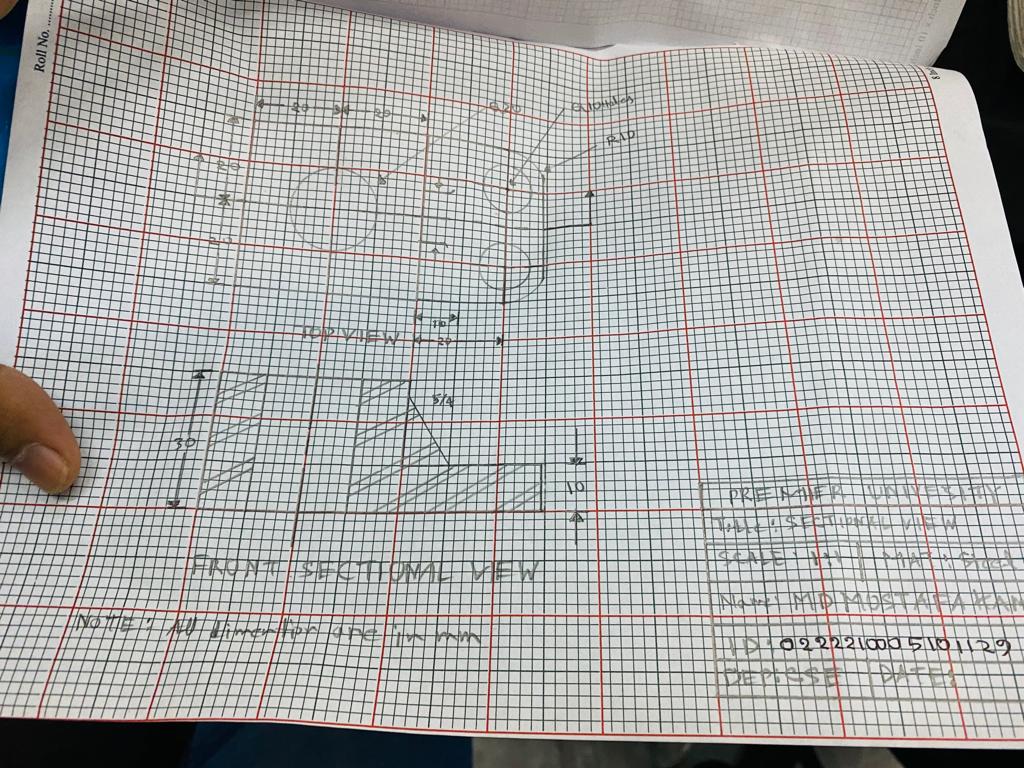 Roll No.
20 20
R10
20
20
10
20
TOP VIEW
30
10
FRONT SECTIONAL VIEW
NOTE: All dimention are in mm
PREMIER UNIVERSITY
Title: SECTIONAL VIEW
SCALE: 1:1 MAT:
Name: MD MOSTAFA KAM
ID: 0222210005101129
DATE: